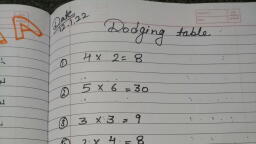 Date
12.1.22
Dodging table
① 4 × 2 = 8
② 5 × 6 = 30
③ 3 × 3 = 9
× 4 = 8